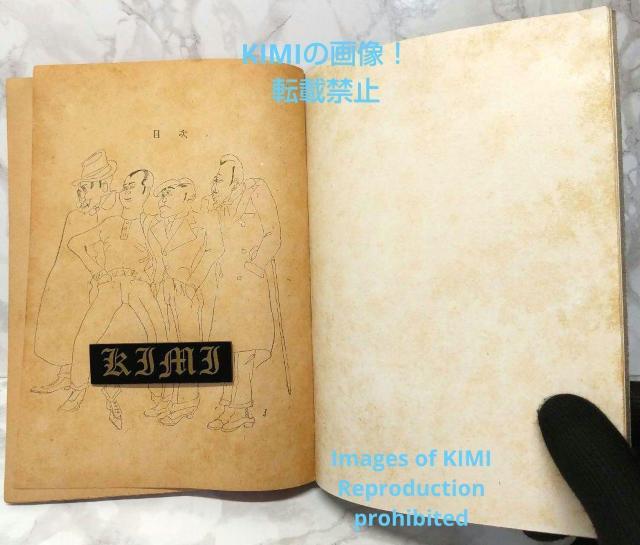 KIMIの画像！
転載禁止
目次
KIMI
Images of KIMI
Reproduction
prohibited